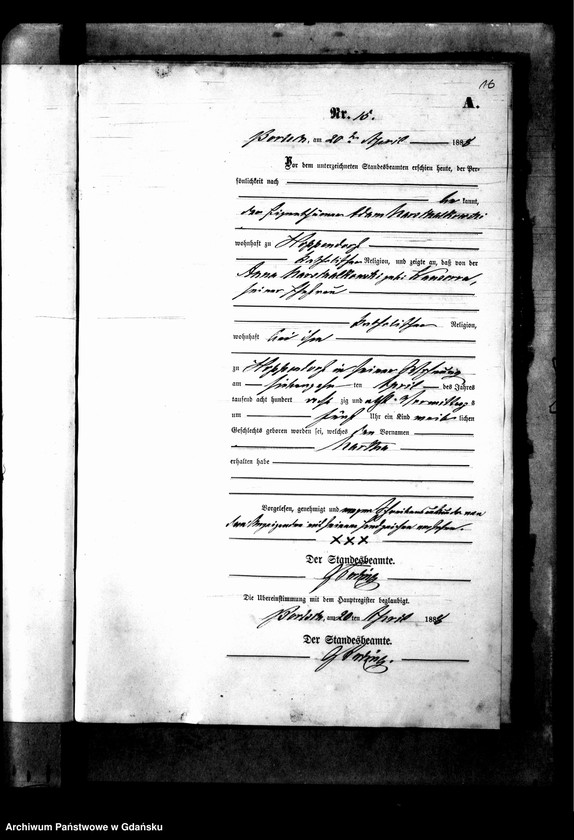 16
A.
Nr. 15.
am 20 ten April 1888
Vor dem unterzeichneten Standesbeamten erschien heute, der Per-
sönlichkeit nach
be kannt,
der Eigenthümer Adam Marschalkowski
wohnhaft zu Hoppendorf
katholischer Religion, und zeigte an, daß von der
Anna Marschalkowski geb.
seiner Ehefrau
katholischer Religion,
wohnhaft bei ihm
zu Hoppendorf in seiner Wohnung
am siebenzehn ten April des Jahres
tausend acht hundert acht zig und acht Vormittags
um fünf Uhr ein Kind weib lichen
Geschlechts geboren worden sei, welches den Vornamen
Martha
erhalten habe
Vorgelesen, genehmigt und wegen Schreibensunkunde von
dem Anzeigenden mit seinem Handzeichen versehen.
XXX
Der Standesbeamte.
Die Übereinstimmung mit dem Hauptregister beglaubigt.
am 20 ten April 1888
Der Standesbeamte.
Archiwum Państwowe w Gdańsku